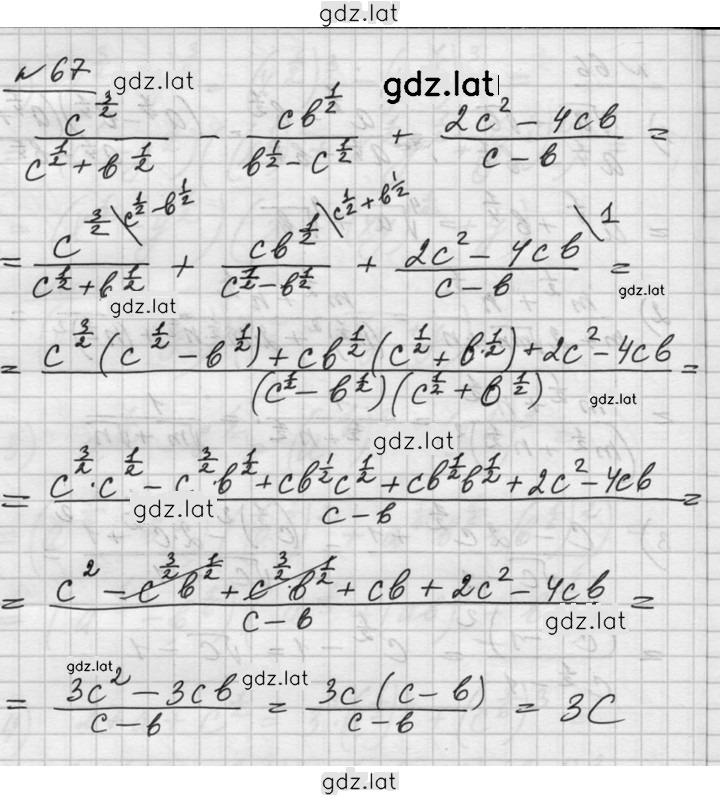 gdz.lat
№ 67 gdz.lat gdz.lat
c^{3/2} / (c^{1/2} + в^{1/2}) − cв^{1/2} / (в^{1/2} − c^{1/2}) + (2c² − 4cв) / (c − в) =
= c^{3/2} \ c^{1/2} − в^{1/2} / (c^{1/2} + в^{1/2}) + cв^{1/2} \ c^{1/2} + в^{1/2} / (c^{1/2} − в^{1/2}) + (2c² − 4cв) \ 1 / (c − в) =
gdz.lat gdz.lat
= (c^{3/2} (c^{1/2} − в^{1/2}) + cв^{1/2} (c^{1/2} + в^{1/2}) + 2c² − 4cв) / ((c^{1/2} − в^{1/2}) (c^{1/2} + в^{1/2})) =
gdz.lat
gdz.lat
= (c^{3/2} · c^{1/2} − c^{3/2} · в^{1/2} + cв^{1/2} c^{1/2} + cв^{1/2} в^{1/2} + 2c² − 4cв) / (c − в) =
gdz.lat
= (c² − c^{3/2} в^{1/2} + c^{3/2} в^{1/2} + cв + 2c² − 4cв) / (c − в) =
gdz.lat
gdz.lat gdz.lat
= (3c² − 3cв) / (c − в) = 3c (c − в) / (c − в) = 3c
gdz.lat